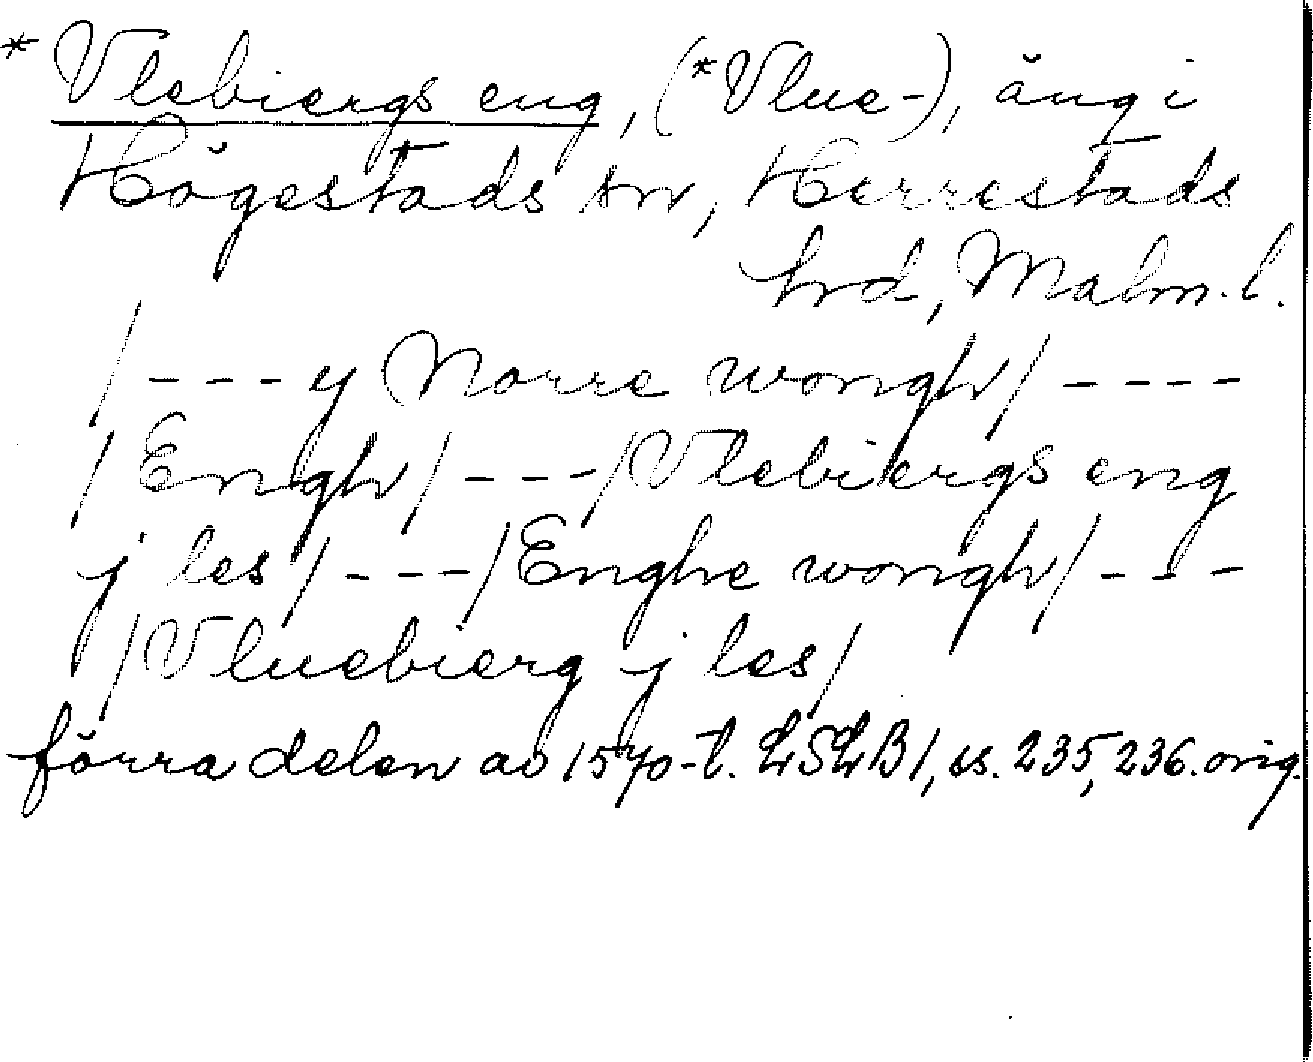 * Vlebiergs eng, (*Vlue-), äng i
Högestads sn, Herrestads
hrd, Malm. l.
/---y Norre wongh/----
/Engh/---/Vlebiergs eng
j les/---/Enghe wongh/---
/Vluebierg j les/
förra delen av 1570-t. LSLB 1, ss. 235, 236. orig.